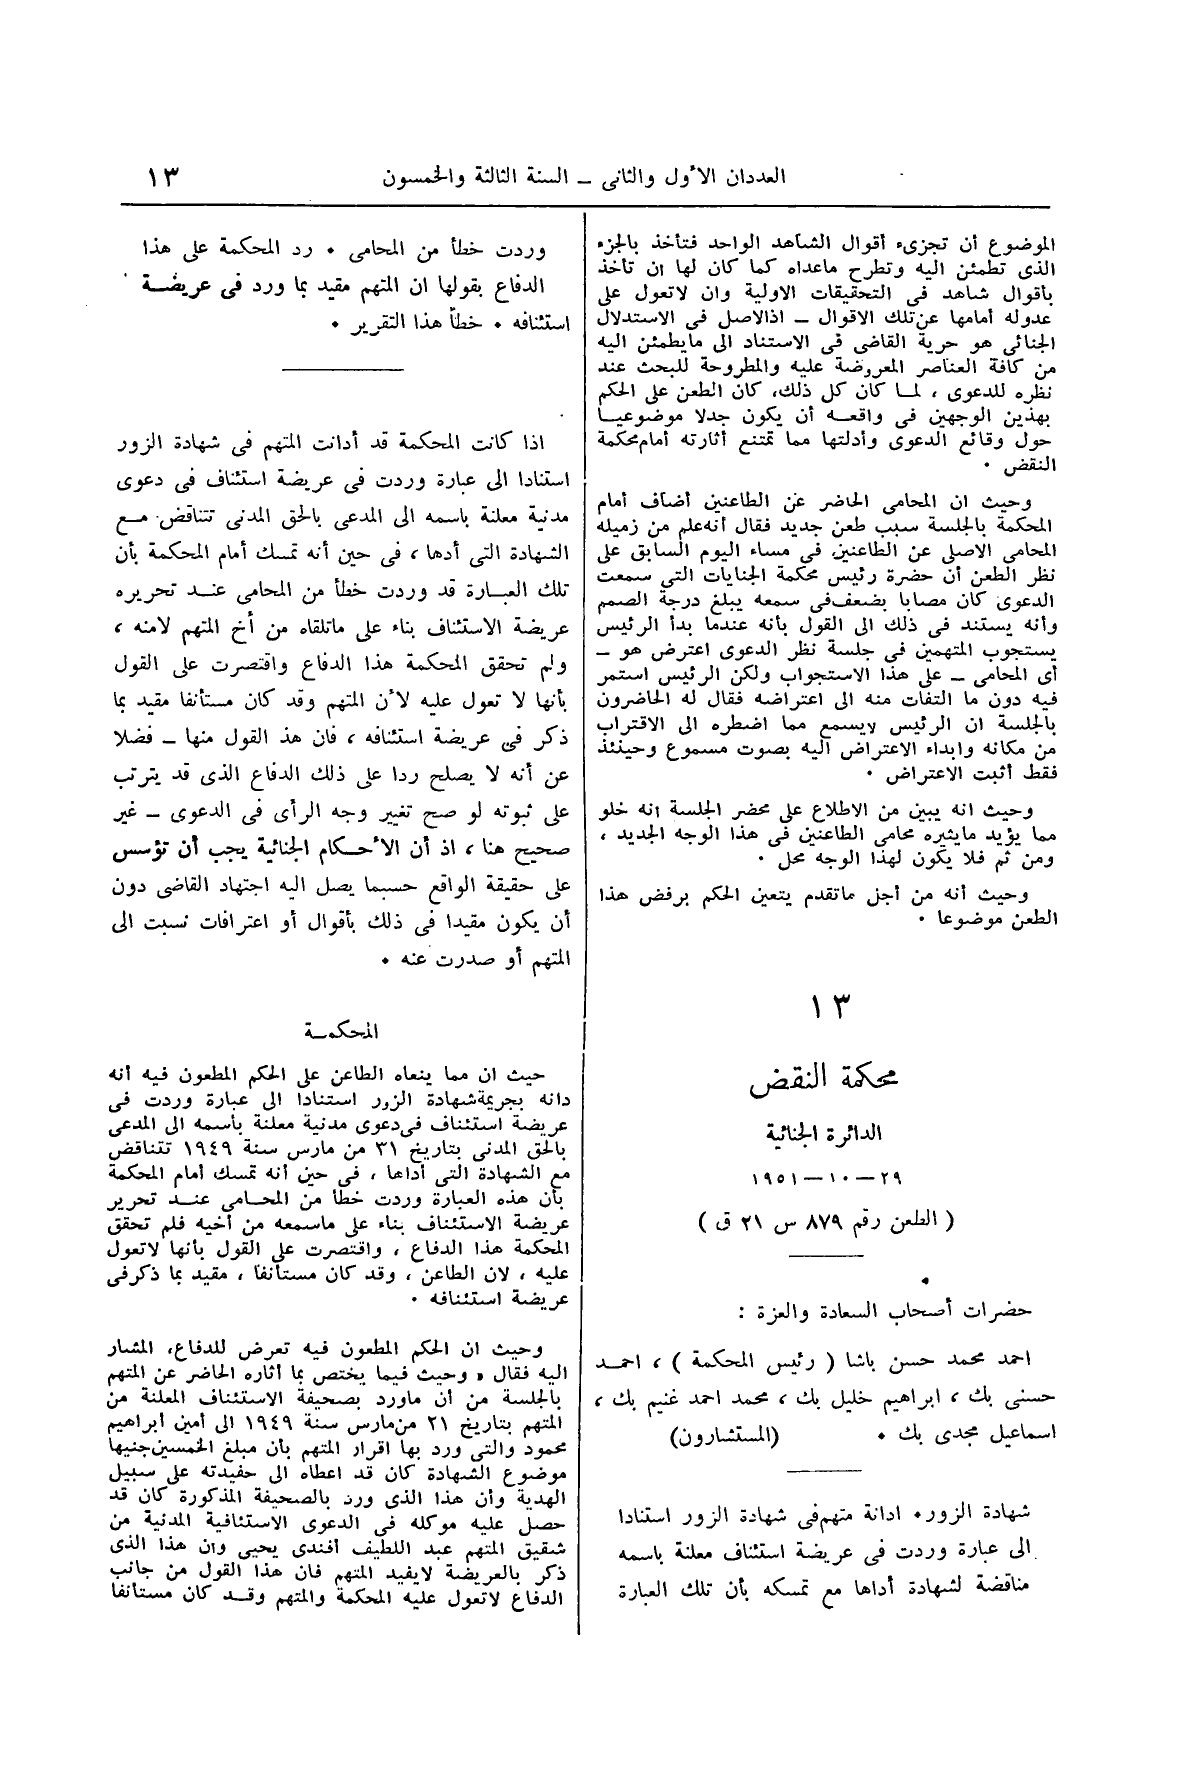 العددان الأول والثانى – السنة الثالثة والخمسون
١٣
الموضوع أن تجزىء أقوال الشاهد الواحد فتأخذ بالجزء
الذى تطمئن اليه وتطرح ماعداه كما كان لها ان تأخذ
بأقوال شاهد فى التحقيقات الاولية وان لاتعول على
عدوله أمامها عن تلك الاقوال – اذالاصل فى الاستدلال
الجنائى هو حرية القاضى فى الاستناد الى مايطمئن اليه
من كافة العناصر المعروضة عليه والمطروحة للبحث عند
نظره للدعوى ، لما كان كل ذلك، كان الطعن على الحكم
بهذين الوجهين فى واقعه أن يكون جدلا موضوعيا
حول وقائع الدعوى وأدلتها مما تمتنع أثارته أمام محكمة
النقض .
وحيث ان المحامى الحاضر عن الطاعنين أضاف أمام
المحكمة بالجلسة سبب طعن جديد فقال أنه علم من زميله
المحامى الاصلى عن الطاعنين فى مساء اليوم السابق على
نظر الطعن أن حضرة رئيس محكمة الجنايات التى سمعت
الدعوى كان مصابا بضعف فى سمعه يبلغ درجة الصمم
وأنه يستند فى ذلك الى القول بأنه عندما بدأ الرئيس
يستجوب المتهمين فى جلسة نظر الدعوى اعترض هو –
أى المحامى – على هذا الاستجواب ولكن الرئيس استمر
فيه دون ما التفات منه الى اعتراضه فقال له الحاضرون
بالجلسة ان الرئيس لايسمع مما اضطره الى الاقتراب
من مكانه وابداء الاعتراض اليه بصوت مسموع وحينئذ
فقط أثبت الاعتراض .
وحيث انه يبين من الاطلاع على محضر الجلسة انه خلو
مما يؤيد مايثيره محامى الطاعنين فى هذا الوجه الجديد ،
ومن ثم فلا يكون لهذا الوجه محل .
وحيث أنه من أجل ماتقدم يتعين الحكم برفض هذا
الطعن موضوعا .
١٣
محكمة النقض
الدائرة الجنائية
٢٩ – ١٠ – ١٩٥١
( الطعن رقم ٨٧٩ س ٢١ ق )
حضرات أصحاب السعادة والعزة :
احمد محمد حسن باشا ( رئيس المحكمة ) ، احمد
حسنى بك ، ابراهيم خليل بك ، محمد احمد غنيم بك ،
اسماعيل مجدى بك . (المستشارون)
شهادة الزور . ادانة متهم فى شهادة الزور استنادا
الى عبارة وردت فى عريضة استئناف معلنة باسمه
مناقضة لشهادة أداها مع تمسكه بأن تلك العبارة
وردت خطأ من المحامى . رد المحكمة على هذا
الدفاع بقولها ان المتهم مقيد بما ورد فى عريضة
استئنافه . خطأ هذا التقرير .
اذا كانت المحكمة قد أدانت المتهم فى شهادة الزور
استنادا الى عبارة وردت فى عريضة استئناف فى دعوى
مدنية معلنة باسمه الى المدعى بالحق المدنى تتناقض مع
الشهادة التى أدها ، فى حين أنه تمسك أمام المحكمة بأن
تلك العبارة قد وردت خطأ من المحامى عند تحريره
عريضة الاستئناف بناء على ماتلقاه من أخ المتهم لامنه ،
ولم تحقق المحكمة هذا الدفاع واقتصرت على القول
بأنها لا تعول عليه لأن المتهم وقد كان مستأنفا مقيد بما
ذكر فى عريضة استئنافه ، فان هذ القول منها – فضلا
عن أنه لا يصلح ردا على ذلك الدفاع الذى قد يترتب
على ثبوته لو صح تغيير وجه الرأى فى الدعوى – غير
صحيح هنا ، اذ أن الأحكام الجنائية يجب أن تؤسس
على حقيقة الواقع حسبما يصل اليه اجتهاد القاضى دون
أن يكون مقيدا فى ذلك بأقوال أو اعترافات نسبت الى
المتهم أو صدرت عنه .
المحكمة
حيث ان مما ينعاه الطاعن على الحكم المطعون فيه أنه
دانه بجريمة شهادة الزور استنادا الى عبارة وردت فى
عريضة استئناف فى دعوى مدنية معلنة بأسمه الى المدعى
بالحق المدنى بتاريخ ٣١ من مارس سنة ١٩٤٩ تتناقض
مع الشهادة التى أداها ، فى حين أنه تمسك أمام المحكمة
بأن هذه العبارة وردت خطأ من المحامى عند تحرير
عريضة الاستئناف بناء على ماسمعه من أخيه فلم تحقق
المحكمة هذا الدفاع ، واقتصرت على القول بأنها لاتعول
عليه ، لان الطاعن ، وقد كان مستأنفا ، مقيد بما ذكرفى
عريضة استئنافه .
وحيث ان الحكم المطعون فيه تعرض للدفاع، المشار
اليه فقال « وحيث فيما يختص بما أثاره الحاضر عن المتهم
بالجلسة من أن ماورد بصحيفة الاستئناف المعلنة من
المتهم بتاريخ ٢١ من مارس سنة ١٩٤٩ الى أمين أبراهيم
محمود والتى ورد بها اقرار المتهم بأن مبلغ الخمسين جنيها
موضوع الشهادة كان قد اعطاه الى حفيدته على سبيل
الهدية وأن هذا الذى ورد بالصحيفة المذكورة كان قد
حصل عليه موكله فى الدعوى الاستئنافية المدنية من
شقيق المتهم عبد اللطيف أفندى يحيى وان هذا الذى
ذكر بالعريضة لايفيد المتهم فان هذا القول من جانب
الدفاع لاتعول عليه المحكمة والمتهم وقد كان مستأنفا